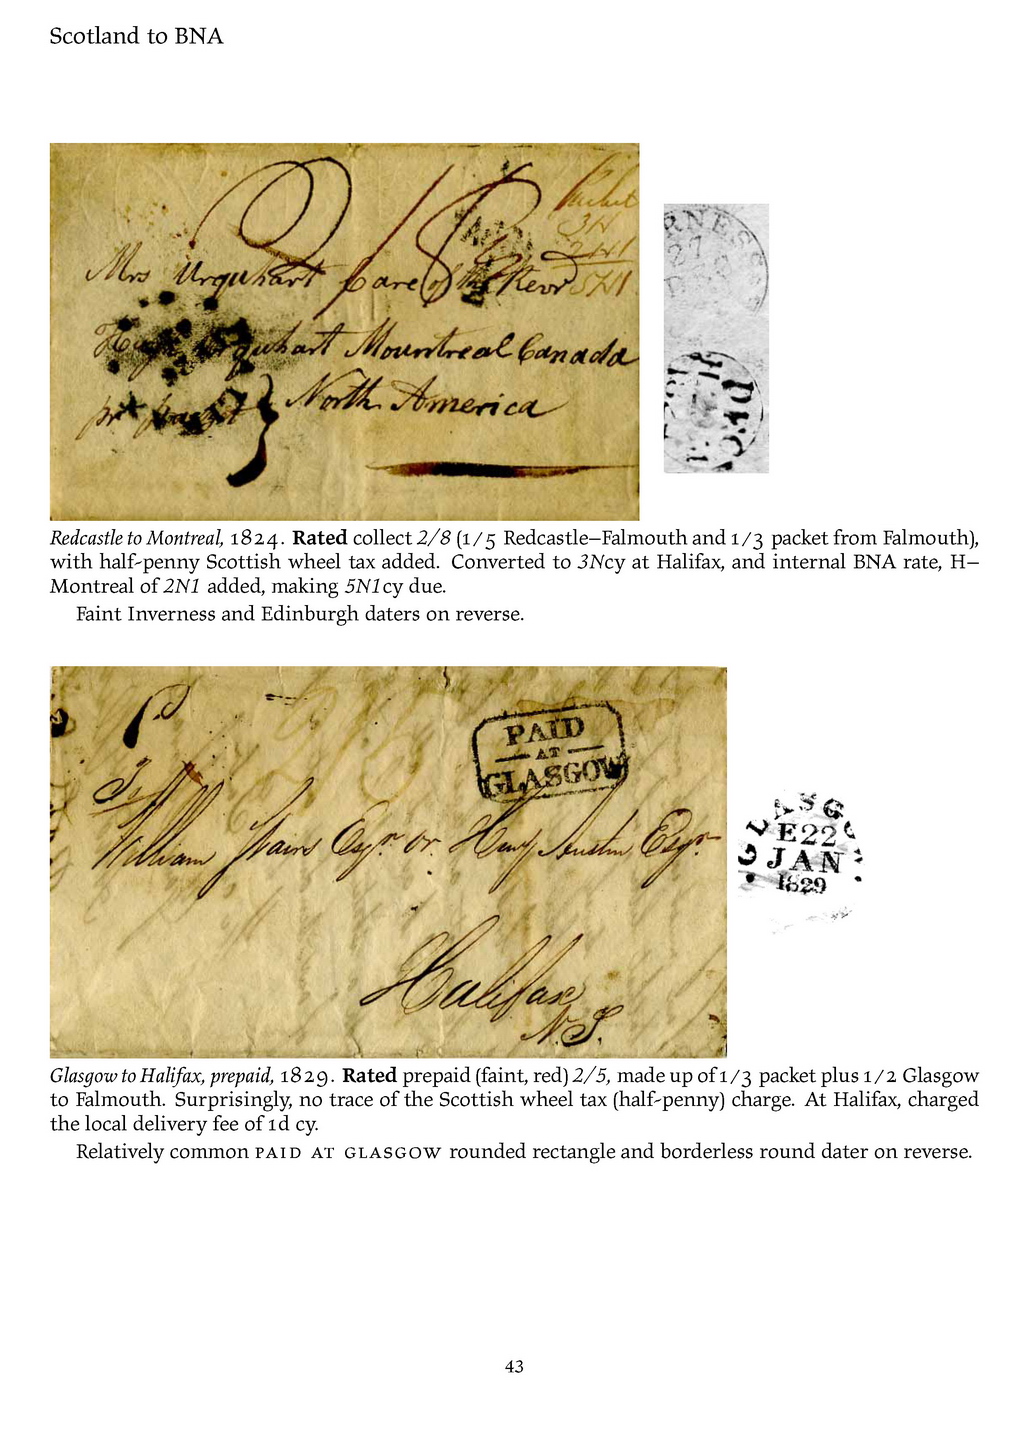 Scotland to BNA
Packet
3N
2N1
Mrs Urquhart Care of the Revr 5N1
Hugh Urquhart Mountreal Canada
pr packet North America
RNESS
27
Redcastle to Montreal, 1824. Rated collect 2/8 (1/5 Redcastle–Falmouth and 1/3 packet from Falmouth),
with half-penny Scottish wheel tax added. Converted to 3Ncy at Halifax, and internal BNA rate, H–
Montreal of 2N1 added, making 5N1cy due.
Faint Inverness and Edinburgh daters on reverse.
PAID
AT
GLASGOW
To
William Stairs Esqr. or Henry Austin Esqr.
Halifax
N.S.
GLASGO
E22
JAN
1829
Glasgow to Halifax, prepaid, 1829. Rated prepaid (faint, red) 2/5, made up of 1/3 packet plus 1/2 Glasgow
to Falmouth. Surprisingly, no trace of the Scottish wheel tax (half-penny) charge. At Halifax, charged
the local delivery fee of 1d cy.
Relatively common PAID AT GLASGOW rounded rectangle and borderless round dater on reverse.
43